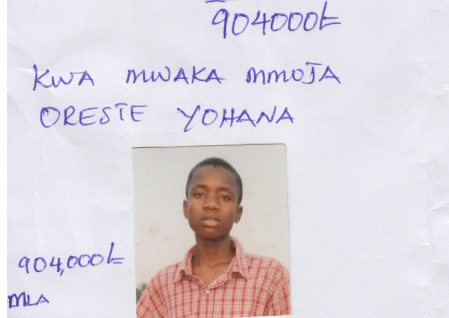 904000/=
KWA MWAKA MMOJA
ORESTE YOHANA
904,000/=
MLA